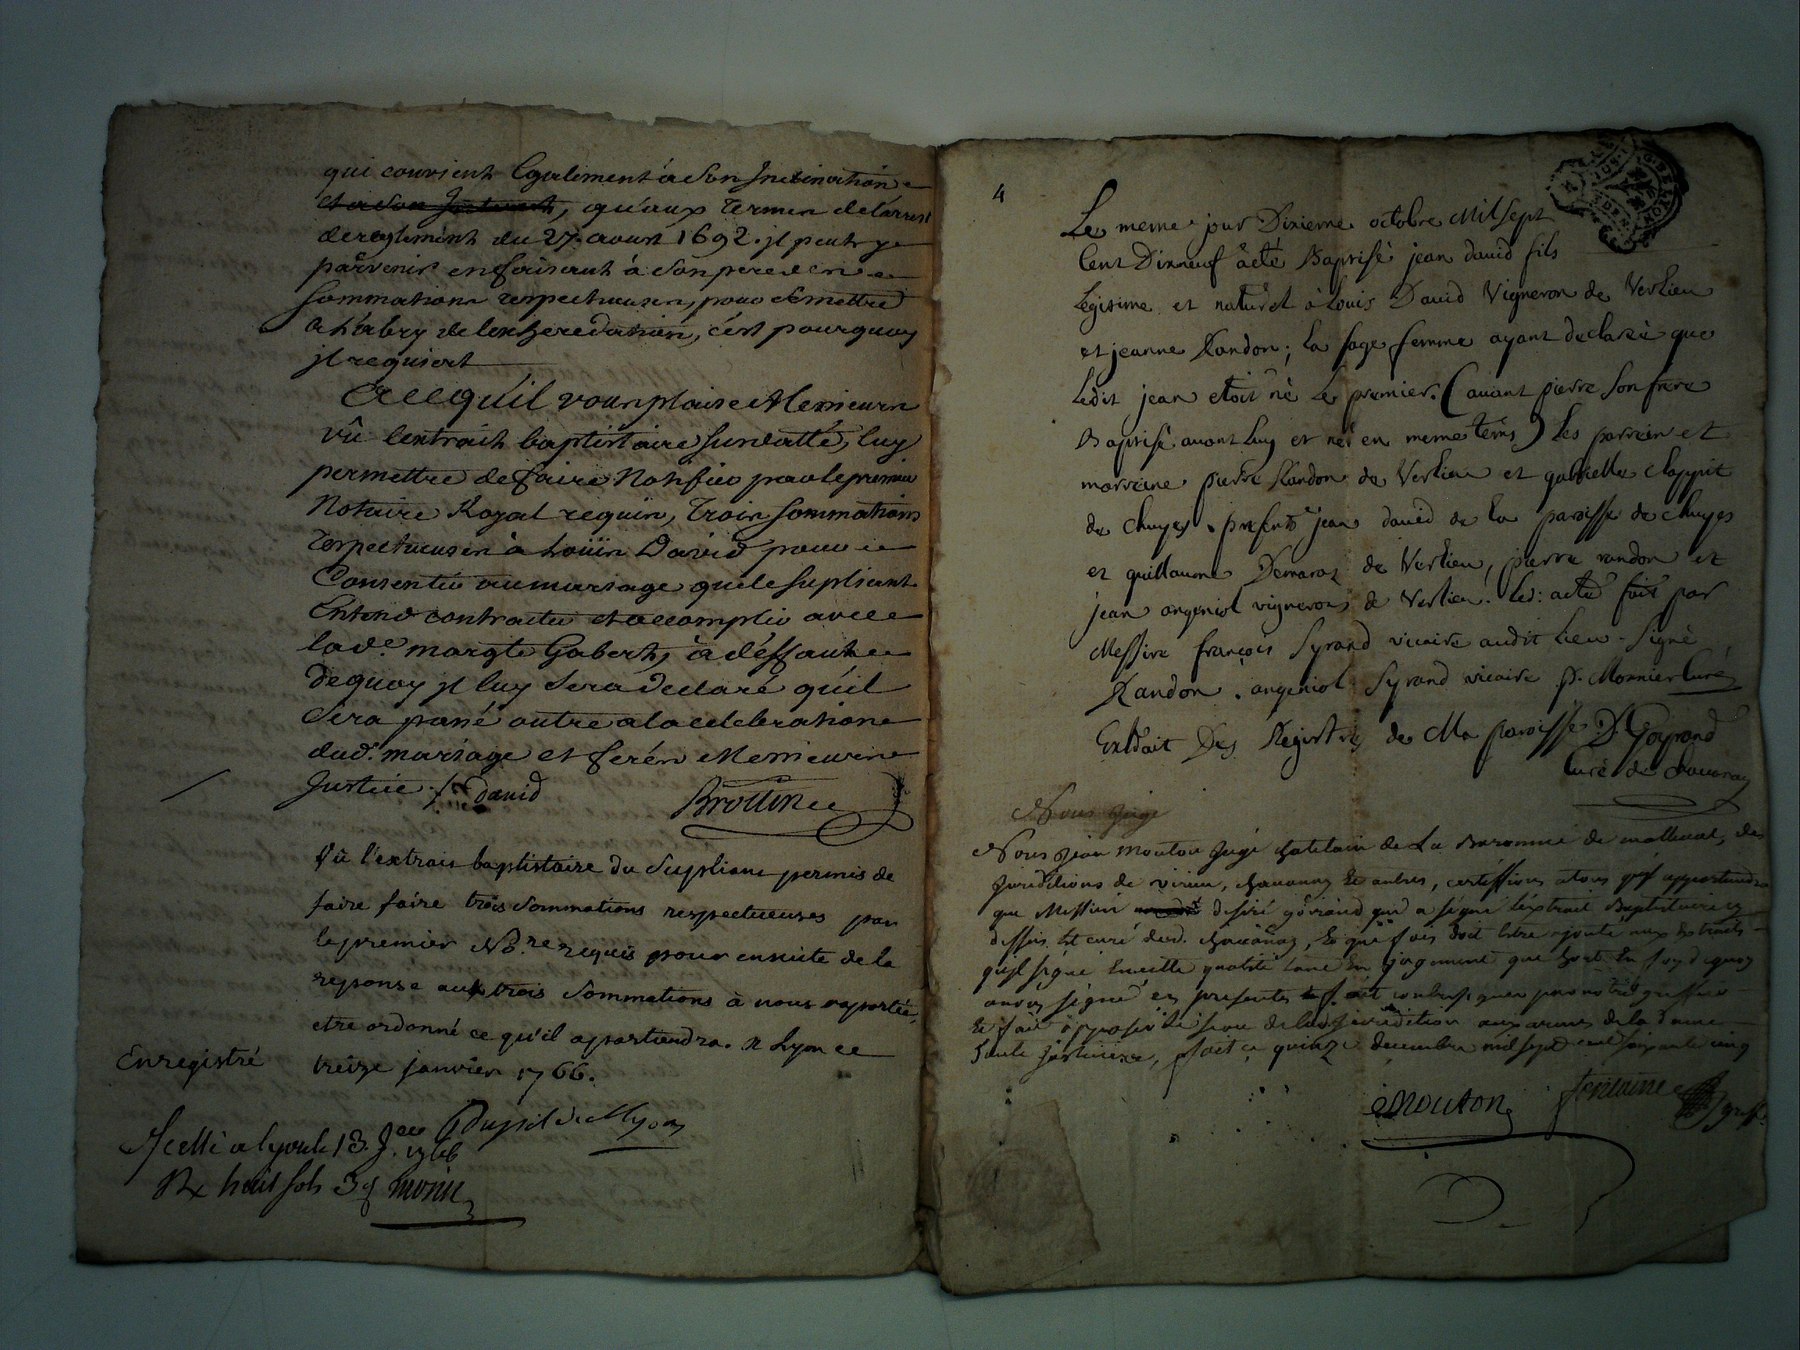 qui convient Egalement à son Inclination
et a son Interest, qu'aux termes de l'arrest
de reglement du 27. aoust 1692. jl peut y
parvenir en faisant à son pere des
sommations respectueuses, pour se mettre
a l'abry de l'exheredation, c'est pourquoy
jl requiert
A ce qu'il vous plaise Messieurs
vû l'extrait baptistaire susdatté, luy
permettre de faire Notifier par le premier
Notaire Royal requis, trois sommations
respectueuses à Loüis David pour
Consentir au mariage que le supliant
Entend contracter et accomplir avec
lad.e margte Gabert, à déffaut
de quoy jl luy sera declaré qu'il
sera passé outre a la celebration
dud. mariage et ferés Messieurs
Justice / david Brottin
Vû l'extrait baptistaire du Supliant permis de
faire faire trois sommations respectueuses par
le premier No.re requis pour ensuite de la
reponse aux trois sommations à nous raportée,
etre ordonné ce qu'il apartiendra. A Lyon ce
Enregistré treize janvier 1766.
Scellé a lyon le 13 J.er 1766
Rx huit sols 3 d morin
4
Le meme jour Dixieme octobre Mil Sept
Cent Dixneuf à été Baptisé jean david fils
Legitime et naturel à Louis David Vigneron de Verlieu
et jeanne Randon; la sage femme ayant declarée que
Ledit jean etoit né Le premier. (auant pierre son frere
Baptisé auant luy et né en meme tems) Les parrein et
marreine pierre Randon de Verlieu et gabrielle Clappit
de Chuyes. presents jean david de la paroisse de chuyes
et guillaume Demaras de Verlieu, pierre randon et
jean angeniol vignerons de Verlieu. led: acte fait par
Messire françois Syrand vicaire audit Lieu. Signé
Randon. angeniol Syrand vicaire P. Monnier Curé
Extrait Des Registres de Ma paroisse D. Goyrand
Curé de chavanay
Nous Juge
Nous Jean Mouton Juge chatelain de La Baronnie de malleval, des
Juridictions de virieu, chavanay & autres, certiffions atous qu'il appartiendra
que Messire desiré goirand qui a signé l'extrait Baptistaire cy
dessus Est curé dud. chavanay, & que foy doit Etre ajoutée aux Extraits
qu'il signe En cette qualité tant En jugement que hors En foy de quoy
avons signé ces presentes fait contresigner par notre greffier
& fait apposer le sceau de lad. juridiction aux armes de la dame
haute justiciere, fait ce quinze decembre mil sept cent soixante cinq
Mouton fontaine greff.